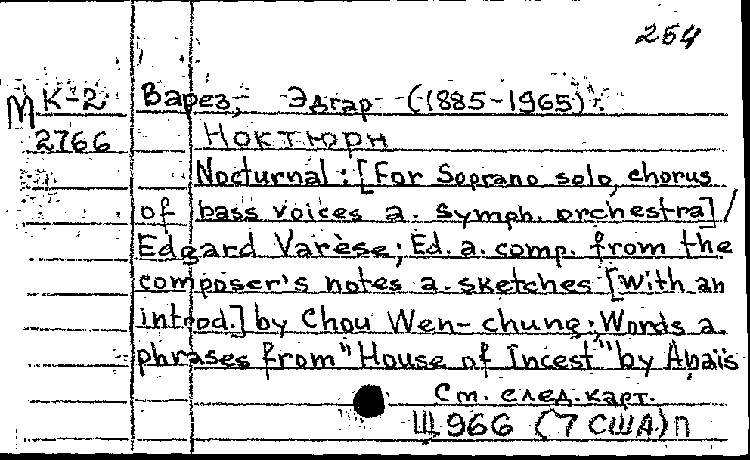 254
М К-2 Варез, Эдгар (1885-1965).
2766 Ноктюрн
Nocturnal : [For Soprano solo, chorus
of bass voices a. symph. orchestra] /
Edgard Varèse; Ed. a. comp. from the
composer's notes a. sketches [with an
introd.] by Chou Wen-chung; Words a.
phrases from "House of Incest" by Anaïs
См. след. карт.
Щ 966 (7 США) п